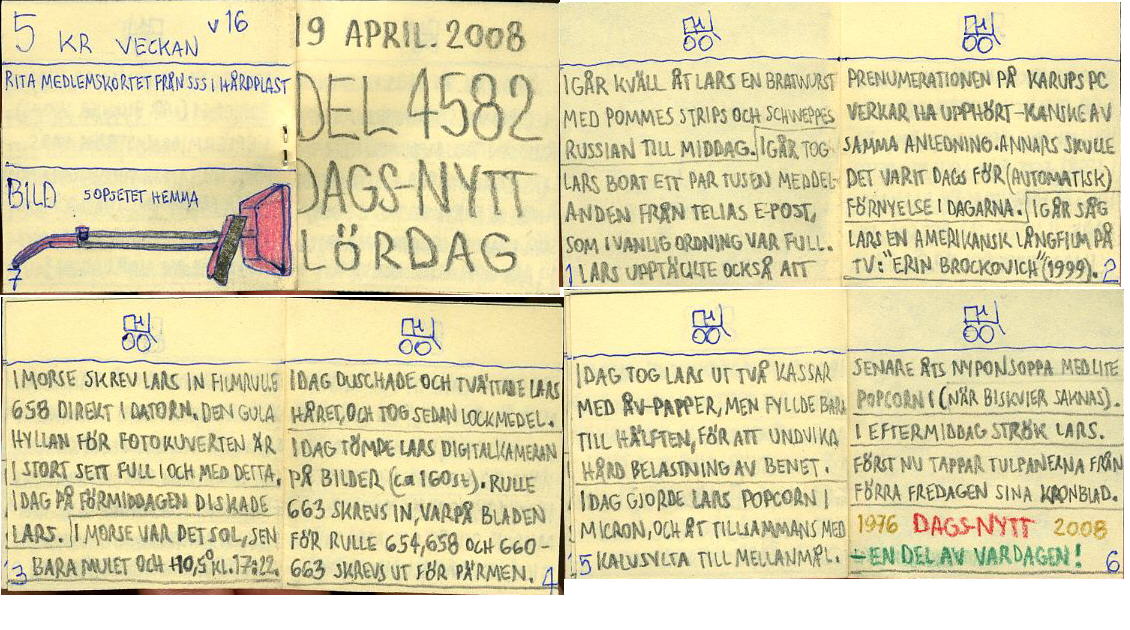 5 KR VECKAN v16
RITA MEDLEMSKORTET FRÅN SSS I HÅRDPLAST
BILD SOPSETET HEMMA
7
19 APRIL. 2008
DEL 4582
DAGS-NYTT
LÖRDAG
IGÅR KVÄLL ÅT LARS EN BRATWURST
MED POMMES STRIPS OCH SCHWEPPES
RUSSIAN TILL MIDDAG. IGÅR TOG
LARS BORT ETT PAR TUSEN MEDDEL-
ANDEN FRÅN TELIAS E-POST,
SOM I VANLIG ORDNING VAR FULL.
1 LARS UPPTÄCKTE OCKSÅ ATT
PRENUMERATIONEN PÅ KARUPS PC
VERKAR HA UPPHÖRT-KANSKE AV
SAMMA ANLEDNING. ANNARS SKULLE
DET VARIT DAGS FÖR (AUTOMATISK)
FÖRNYELSE I DAGARNA. IGÅR SÅG
LARS EN AMERIKANSK LÅNGFILM PÅ
TV: "ERIN BROCKOVICH" (1999). 2
I MORSE SKREV LARS IN FILMRULLE
658 DIREKT I DATORN. DEN GULA
HYLLAN FÖR FOTOKUVERTEN ÄR
I STORT SETT FULL I OCH MED DETTA.
IDAG PÅ FÖRMIDDAGEN DISKADE
LARS. I MORSE VAR DET SOL, SEN
3 BARA MULET OCH +10,5° KL. 17:22.
IDAG DUSCHADE OCH TVÄTTADE LARS
HÅRET, OCH TOG SEDAN LOCKMEDEL.
IDAG TÖMDE LARS DIGITALKAMERAN
PÅ BILDER (ca 160st). RULLE
663 SKREVS IN, VARPÅ BLADEN
FÖR RULLE 654, 658 OCH 660-
663 SKREVS UT FÖR PÄRMEN. 4
IDAG TOG LARS UT TVÅ KASSAR
MED ÅV-PAPPER, MEN FYLLDE BARA
TILL HÄLFTEN, FÖR ATT UNDVIKA
HÅRD BELASTNING AV BENET.
IDAG GJORDE LARS POPCORN I
MICRON, OCH ÅT TILLSAMMANS MED
5 KALVSYLTA TILL MELLANMÅL.
SENARE ÅTS NYPONSOPPA MED LITE
POPCORN I (NÄR BISKVIER SAKNAS).
I EFTERMIDDAG STRÖK LARS.
FÖRST NU TAPPAR TULPANERNA FRÅN
FÖRRA FREDAGEN SINA KRONBLAD.
1976 DAGS-NYTT 2008
-EN DEL AV VARDAGEN! 6